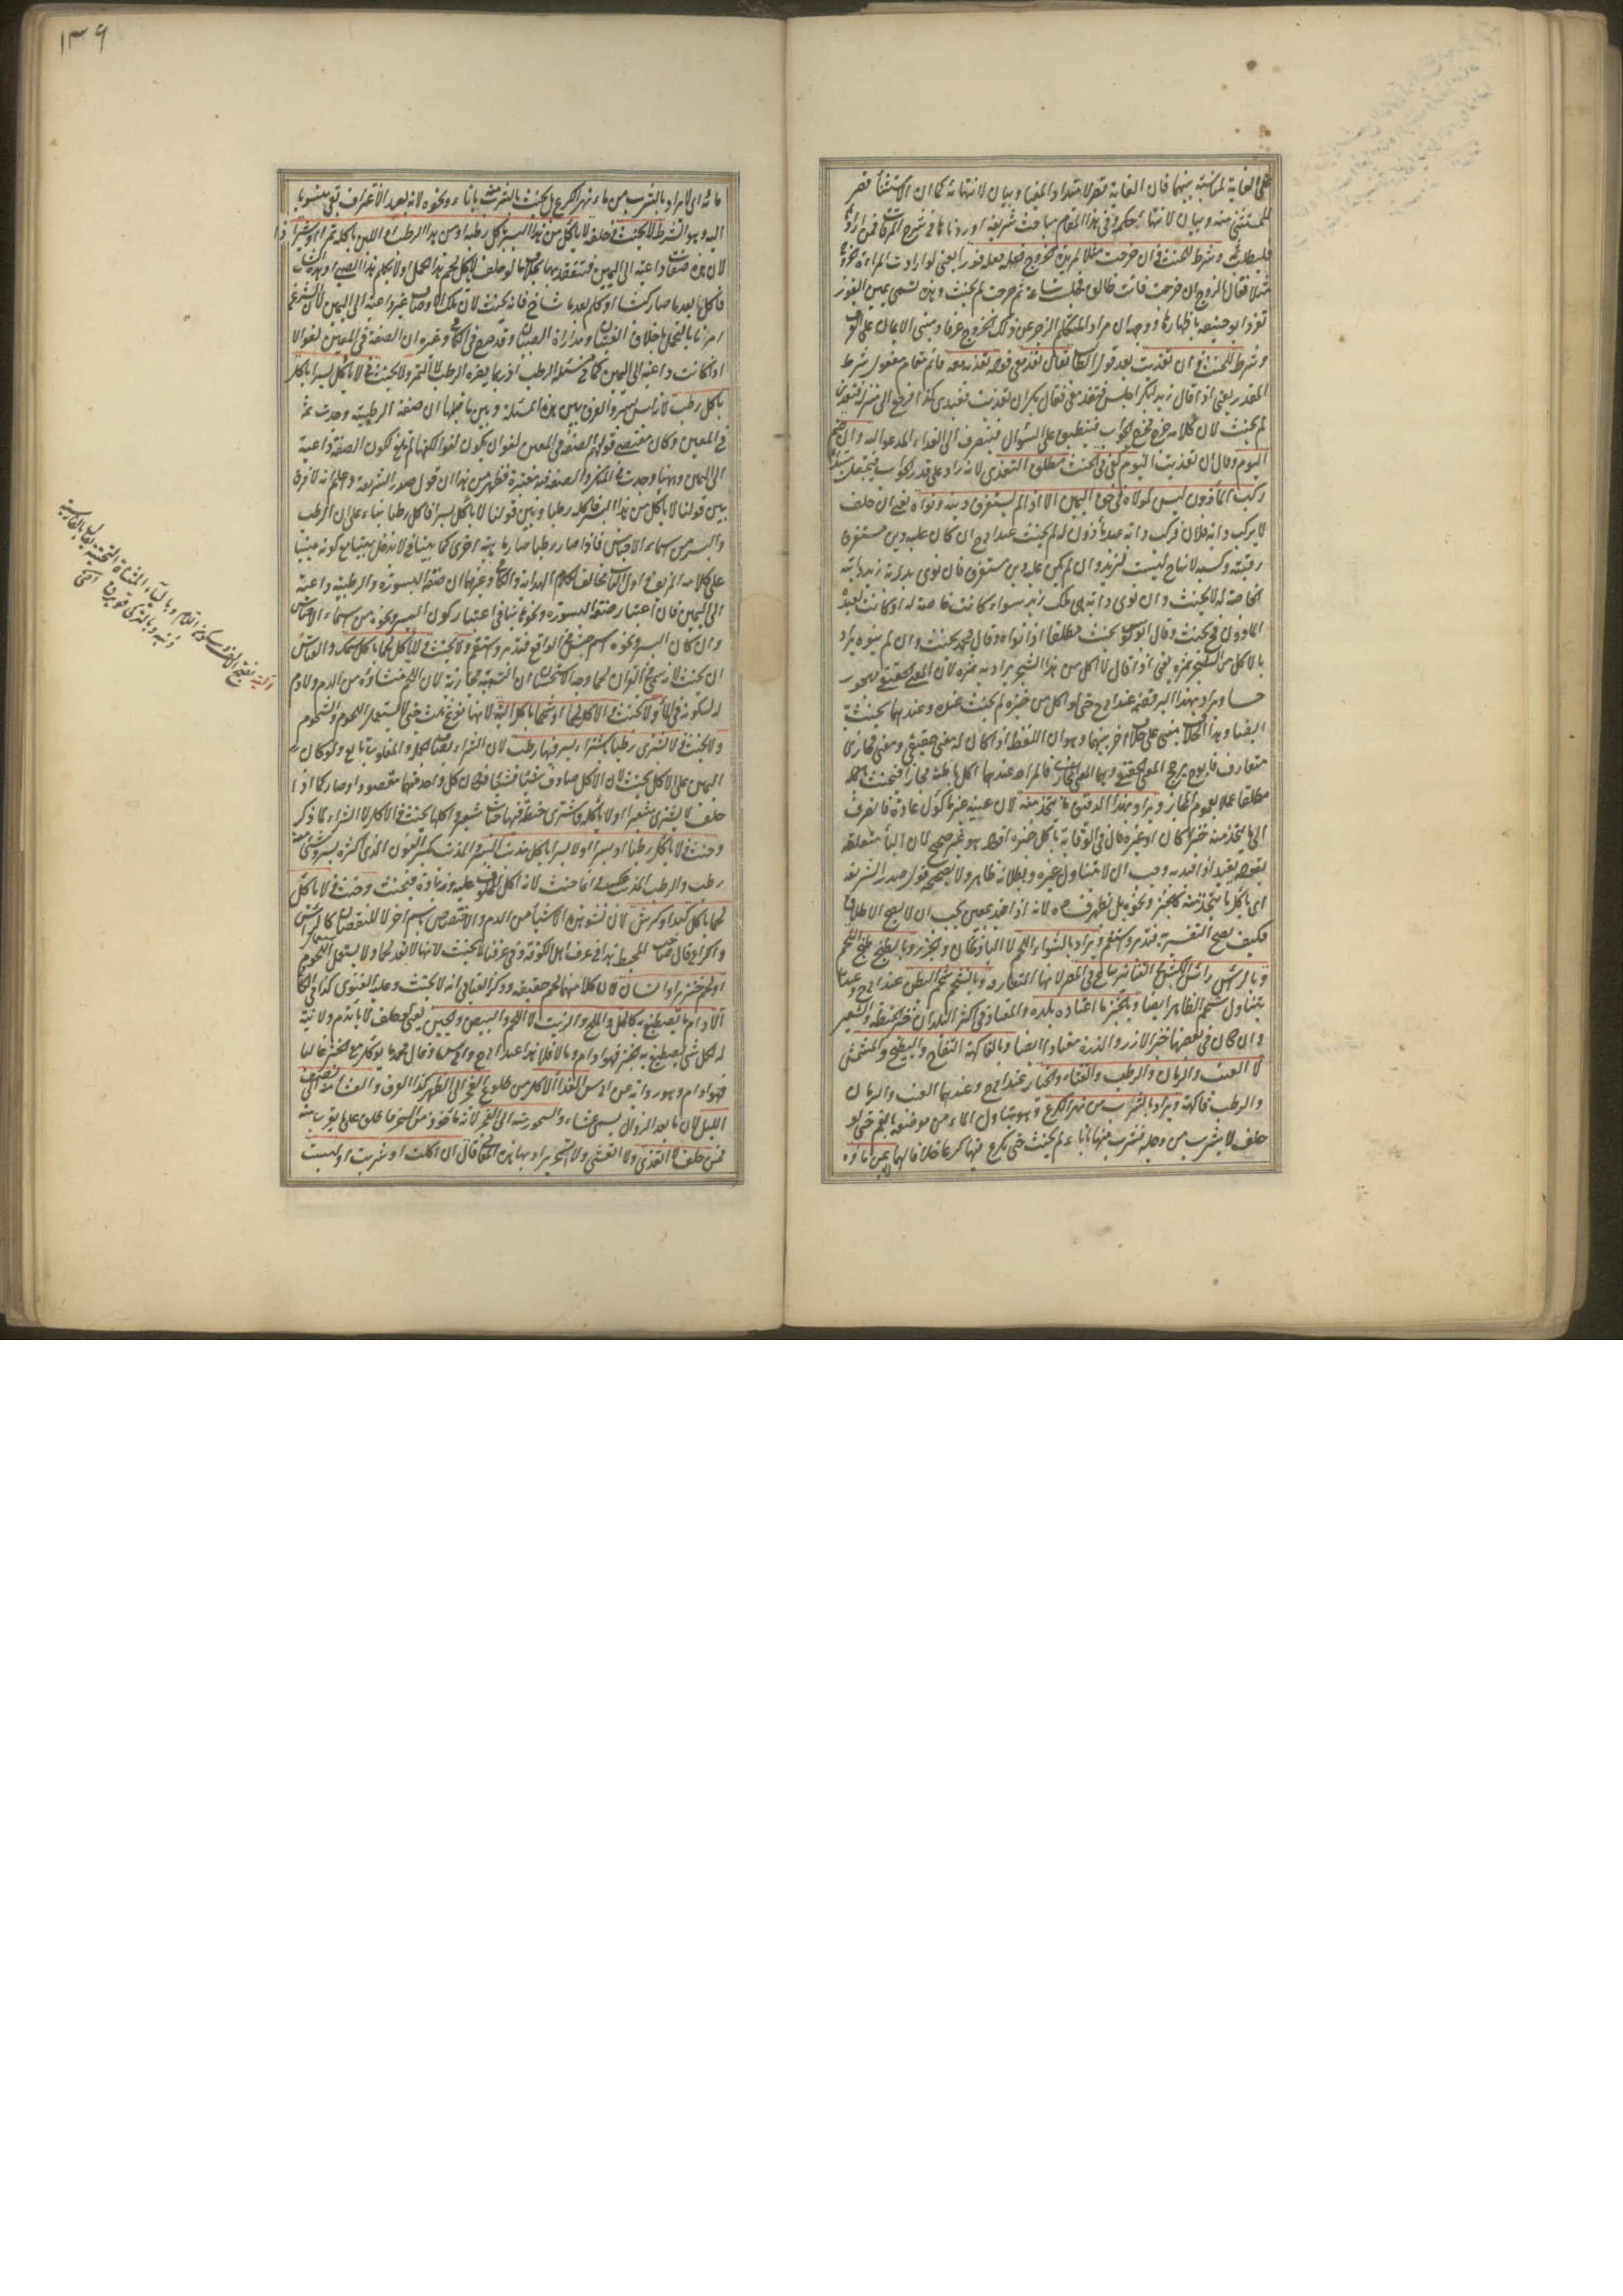 على الغاية لمناسبة بينهما فان الغاية قصر لامتداد المغيا وبيان لانتهائه كما ان الاستثناء قصر
للمستثنى منه وبيان لانتهاء حكمه وفي هذا المقام مباحث شريفة اوردناها في شرح المرقات فمن ارادها
فليطلب ثمه وشرط للحنث في ان خرجت مثلا لمريد خروج فعله فورا يعني لو ارادت المراة خروجا
مثلا فقال الزوج ان خرجت فانت طالق فجلست ساعة ثم خرجت لم يحنث وهذه تسمى يمين الفور
تفرد ابو حنيفة باظهارها ووجهه ان مراد المتكلم الزجر عن ذلك الخروج عرفا ومبنى الايمان على العرف
وشرط للحنث في ان تغديت بعد قول الطالب تعال تغد معي قوله تغديه معه قائم مقام مفعول شرط
المقدر يعني اذا قال زيد لبكر اجلس فتغد معي فقال بكر ان تغديت فعبدي كذا فرجع الى منزله فتغدى
لم يحنث لان كلامه خرج مخرج الجواب فينطبق على السؤال فينصرف الى الغداء المدعو اليه وان ضم
اليوم وقال ان تغديت اليوم كفى في الحنث مطلق التغدي لانه زاد على قدر الجواب فيجعل مبتدئا
مركب المأذون ليس لمولاه في حق اليمين الا اذا لم يستغرق دينه ونواه يعني ان حلف
لا يركب دابة فلان فركب دابة عبد مأذون له لم يحنث عند ابي ح ان كان عليه دين مستغرق
رقبته وكسبه لانها ح ليست لزيد وان لم يكن عليه دين مستغرق فان نوى بدابة زيد دابته
الخاصة له لا يحنث وان نوى دابة هي ملك زيد سواء كانت خاصة له او كانت لعبده
المأذون فح يحنث وقال ابو يوسف يحنث مطلقا اذا نواه وقال محمد يحنث وان لم ينوه يراد
بالاكل من الشجر ثمره يعني اذا قال لا اكل من هذا الشجر يراد به ثمره لان المعنى الحقيقي مهجور
حسا ويراد بهذا البر قضمه عند ابي ح حتى لو اكل من خبزه لم يحنث عنده وعندهما يحنث
ايضا وهذا الخلاف مبني على خلاف اخر بينهما وهو ان اللفظ اذا كان له معنى حقيقي ومعنى مجازي
متعارف فابو ح يرجح المعنى الحقيقي وهما المعنى المجازي فالمراد عندهما اكل باطنه مجازا فيحنث
مطلقا عملا بعموم المجاز ويراد بهذا الدقيق ما يتخذ منه لان عينه غير مأكول عادة فانصرف
الى ما يتخذ منه خبزا كان او غيره قال في الوقاية باكل خبزه اقول هو غير صحيح لان الباء متعلقة
بقوله يقيد او قيد به وجب ان لا يتناول غيره وبطلانه ظاهر ولا يصححه قول صدر الشريعة
اي باكل ما يتخذ منه كالخبز ونحوه بل يظهر فساده لانه اذا اخذ بمعنى يجب ان لا يصح الاطلاق
فكيف يصح التفسير به فتدبر واستقم ويراد بالشواء اللحم لا الباذنجان والجزر وبالطبيخ طبيخ اللحم
وبالرأس رأس يكبس في التنانير ويباع في المصر لانها المتعارفه وبالشحم شحم البطن عند ابي ح وعندهما
يتناول شحم الظاهر ايضا وبالخبز ما اعتاده بلده والمعتاد في اكثر البلدان خبز الحنطة والشعير
وان كان في بعضها خبز الارز والذرة معتادا ايضا وبالفاكهة التفاح والبطيخ والمشمش
لا العنب والرمان والرطب والقثاء والخيار عند ابي ح وعندهما العنب والرمان
والرطب فاكهة ويراد بالشرب من نهر الكرع وهو تناول الماء من موضعه بالفم حتى لو
حلف لا يشرب من دجلة فشرب منها باناء لم يحنث حتى يكرع فيها كرعا خلافا لهما بخلاف من مائه
١٣٦
مائه اي لا يراد بالشرب من ماء نهر الكرع بل يحنث بالشرب منه باناء ونحوه لانه بعد الاغتراف بقي منسوبا
اليه وهو الشرط لا يحنث في حلفه لا يأكل من هذا البسر باكل رطبه او من هذا الرطب او اللبن باكله تمرا او شيرازا
لان هذه صفات داعية الى اليمين فتتقيد بها بخلاف ما لو حلف لا يأكل لحم هذا الحمل او لا يكلم هذا الصبي او هذا الشاب
فاكل ما بعد ما صار كبشا او كلم بعد ما شاخ فانه يحنث لان تلك الاوصاف غير داعية الى اليمين لان الشرع
امرنا بالتحمل باخلاق الفتيان ومداراة الصبيان وقد صرح في الكافي وغيره ان الصفة في المعين لغو الا
اذا كانت داعية الى اليمين كما في مسئلة الرطب اذ ربما يضره الرطب لا التمر ولا يحنث في لا يأكل بسرا باكل
باكل رطب لانه ليس ببسر والفرق بين هذه المسئلة وبين ما قبلها ان صفة الرطبية وجدت ثمة
في المعين وكان مقتضى قولهم الصفة في المعين لغو ان يكون لغوا لكنها لم تلغ لكون الصفة داعية
الى اليمين وههنا وجدت في المنكر والصفة فيه معتبرة فظهر من هذا ان قول صدر الشريعة واعلم انه لا فرق
بين قولنا لا يأكل من هذا البسر فاكله رطبا وبين قولنا لا يأكل بسرا فاكل رطبا بناء على ان الرطب
والبسر من اسماء الاجناس فاذا صار رطبا صار ماهية اخرى كما بينا في لا يدخل بيتا مع كونه مبنيا
على كلامه المزيف في اول الكتاب مخالف لكلام الهداية والكافي وغيرهما ان صفة البسورة والرطبية داعية
الى اليمين فان اعتبار صفة البسورة ونحوها ينافي اعتبار كون البسر ونحوه من اسماء الاجناس
وان كان البسر ونحوه اسم جنس في الواقع فتدبر واستقم ولا يحنث في لا يأكل لحما باكل سمك والقياس
ان يحنث لانه سمي في القران لحما وجه الاستحسان ان التسمية مجازية لان اللحم منشاؤه من الدم ولا دم
له لسكونه في الماء ولا يحنث في لا يأكل لحما او شحما باكل الية لانها نوع ثالث حتى لا يستعمل استعمال اللحوم والشحوم
ولا يحنث في لا يشتري رطبا بشراء بسر فيها رطب لان الشراء يصادف الجملة والمغلوب تابع ولو كان
اليمين على الاكل يحنث لان الاكل صادفه شيئا فشيئا فكان كل واحد منهما مقصودا وصار كما اذا
حلف لا يشتري شعيرا او لا يأكله فاشترى حنطة فيها حبات شعير واكلها يحنث في الاكل لا الشراء لما ذكر
وحنث في لا يأكل رطبا او بسرا او لا بسرا باكل مذنب البسر المذنب بكسر النون الذي اكثره بسر وشيء منه
رطب والرطب المذنب عكسه وانما حنث لانه اكل المحلوف عليه وزيادة فيحنث وحنث في لا يأكل
لحما باكل كبد او كرش لان نشو هذه الاشياء من الدم والاختصاص باسم اخر لا للنقصان كالرأس
والكراع قال صاحب المحيط هذا في عرف اهل الكوفة وفي عرفنا لا يحنث لانها لا تعد لحما ولا يستعمل استعمال اللحوم
او لحم خنزير او انسان لان كلا منهما لحم حقيقة وذكر العتابي انه لا يحنث وعليه الفتوى كذا في الكافي
الادام ما يصطبغ به كالخل والملح والزيت لا اللحم والبيض والجبن يعني لو حلف لا يأتدم ولا نية
له فكل شيء يصطبغ به الخبز فهو ادام وما لا فلا هذا عند ابي ح وابي يوسف وقال محمد ما يؤكل مع الخبز غالبا
فهو ادام وهو رواية عن ابي يوسف الغداء الاكل من طلوع الفجر الى الظهر كذا العرف والعشاء منه الى نصف
الليل لان ما بعد الزوال يسمى عشاء والسحور منه الى الفجر لانه مأخوذ من السحر فاطلق على ما يقرب منه
فمن حلف لا يتغدى ولا يتعشى ولا يتسحر يراد بها هذه المعاني قال ان اكلت او شربت او لبست